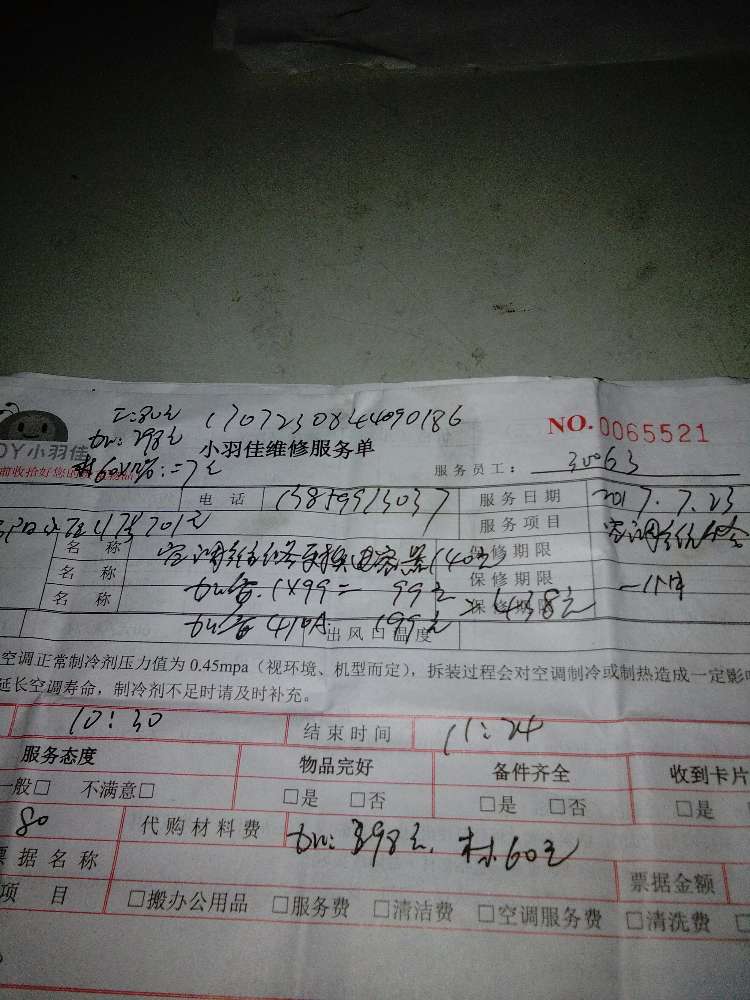 工:80元 170723084409018 6
NO.0065521
加:298元
OY小羽佳 小羽佳维修服务单
材60×12%:=7元
服务员工: 30063
电话 服务日期 2017.7.23
4号701室 服务项目 空调维修
名称 空调维修更换电容器140元 保修期限
名称 加雪.1×99= 99元 保修期限 一个月
名称 438元 保修期限
加雪410A 199元 出风口温度
空调正常制冷剂压力值为 0.45mpa(视环境、机型而定),拆装过程会对空调制冷或制热造成一定影
延长空调寿命,制冷剂不足时请及时补充。
10:30 结束时间 11:24
服务态度 物品完好 备件齐全 收到卡片
一般□ 不满意□ □是 □否 □是 □否 □是
80 代购材料费 加:298元, 材60元
票据名称 票据金额
项目 □搬办公用品 □服务费 □清洁费 □空调服务费 □清洗费